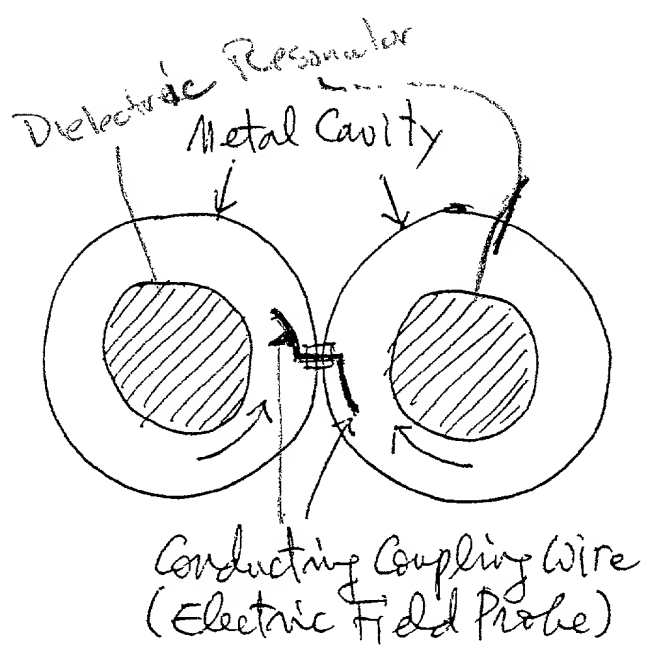 Dielectric Resonator
Metal Cavity
Conducting Coupling Wire
(Electric Field Probe)